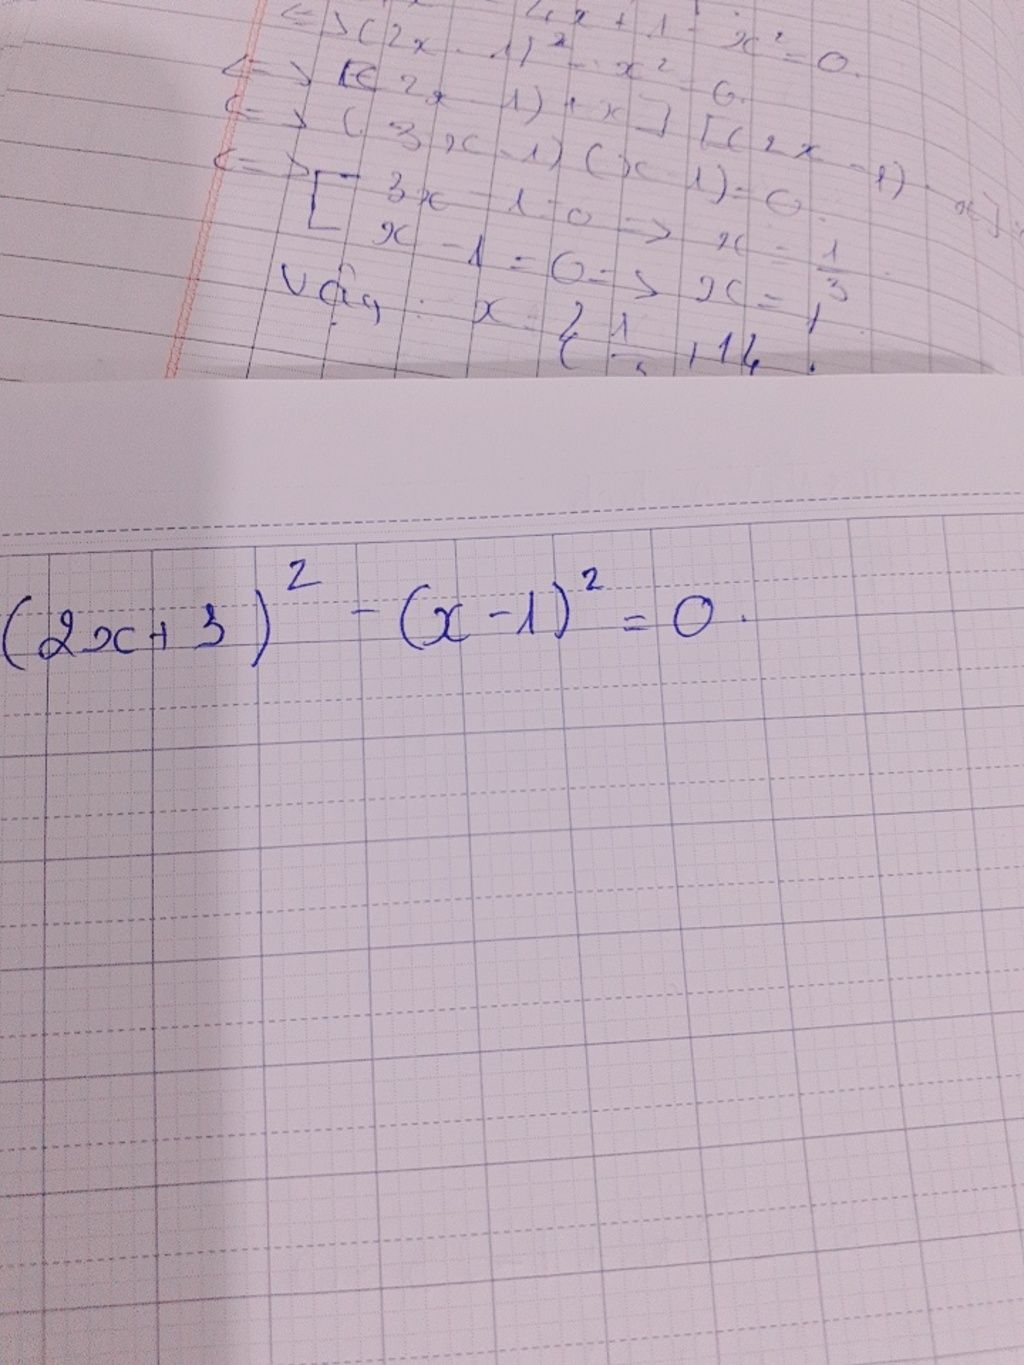 4x + 1 - x² = 0.
<=> (2x - 1)² - x² = 0.
<=> [(2x - 1) + x] [(2x - 1) - x]
<=> (3x - 1) (x - 1) = 0.
<=> [ 3x - 1 = 0 => x = 1/3
x - 1 = 0 => x = 1
Vậy : x = { 1/3 , 1 }
(2x + 3)² - (x - 1)² = 0.